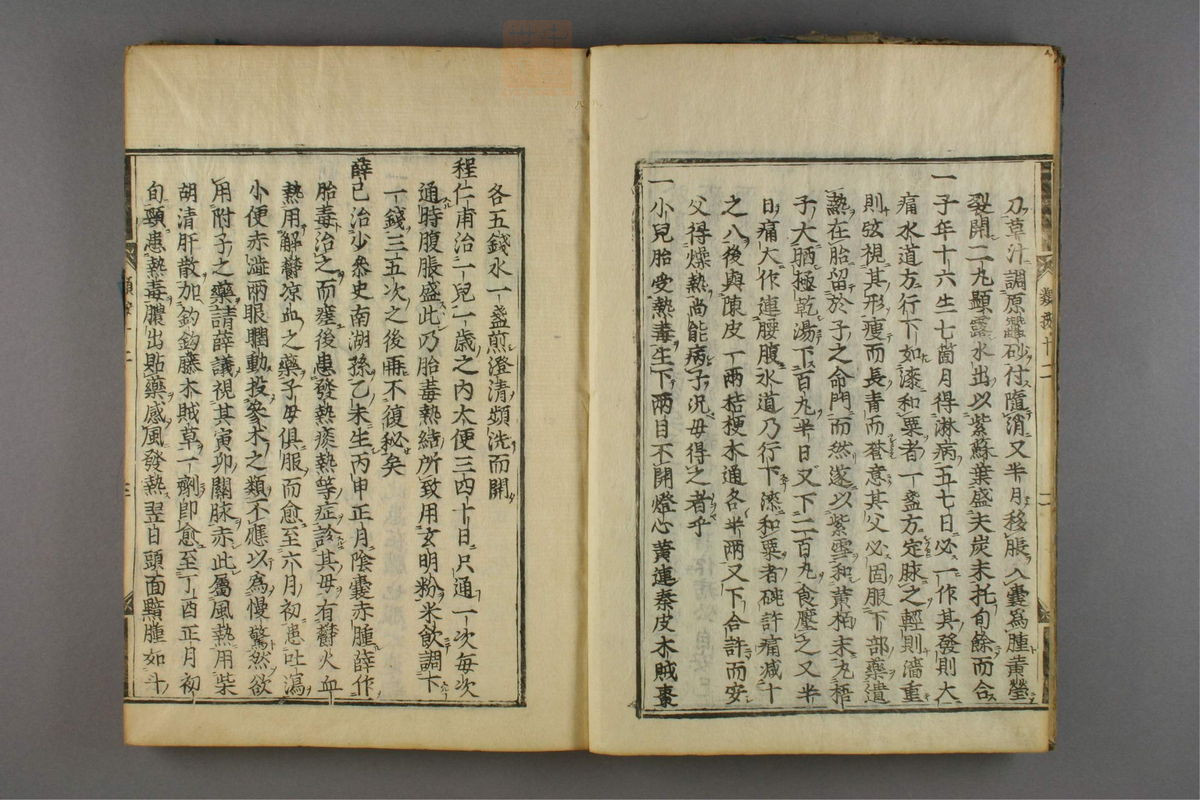 刀草汁調原蠶砂付隨消又半月移脹入囊爲腫黃瑩
裂開二丸顯露水出以紫蘇葉盛夫炭末托旬餘而合
一子年十六生七箇月得淋病五七日必一作其發則大
痛水道方行下如漆和粟者一盞方定脉之輕則濇重
則弦視其形瘦而長青而蒼意其父必固服下部藥遺
熱在胎留於子之命門而然遂以紫雪和黃栢末丸梧
子大晒極乾湯下百丸半日又下二百丸食壓之又半
日痛大作連腰腹水道乃行下漆和粟者碗許痛減十
之八後與陳皮一兩桔梗木通各半兩又下合許而安
父得燥熱尚能病子况母得之者乎
一小兒胎受熱毒生下兩目不開燈心黃連秦皮木賊棗
各五錢水一盞煎澄清頻洗而開
程仁甫治一兒一歲之內大便三四十日只通一次每次
通時腹脹盛此乃胎毒熱結所致用玄明粉米飲調下
一錢三五次之後再不復秘矣
薛己治少叅史南湖孫乙未生丙申正月陰囊赤腫薛作
胎毒治之而瘥後患發熱痰熱等症診其母有鬱火血
熱用解鬱凉血之藥子母俱服而愈至六月初患吐瀉
小便赤澁兩眼瞤動投參朮之類不應以爲慢驚然欲
用附子之藥請薛議視其寅卯關脉赤此屬風熱用柴
胡清肝散加鈎鈎藤木賊草一劑卽愈至丁酉正月初
旬頸患熱毒膿出貼藥感風發熱翌日頭面黯腫如斗